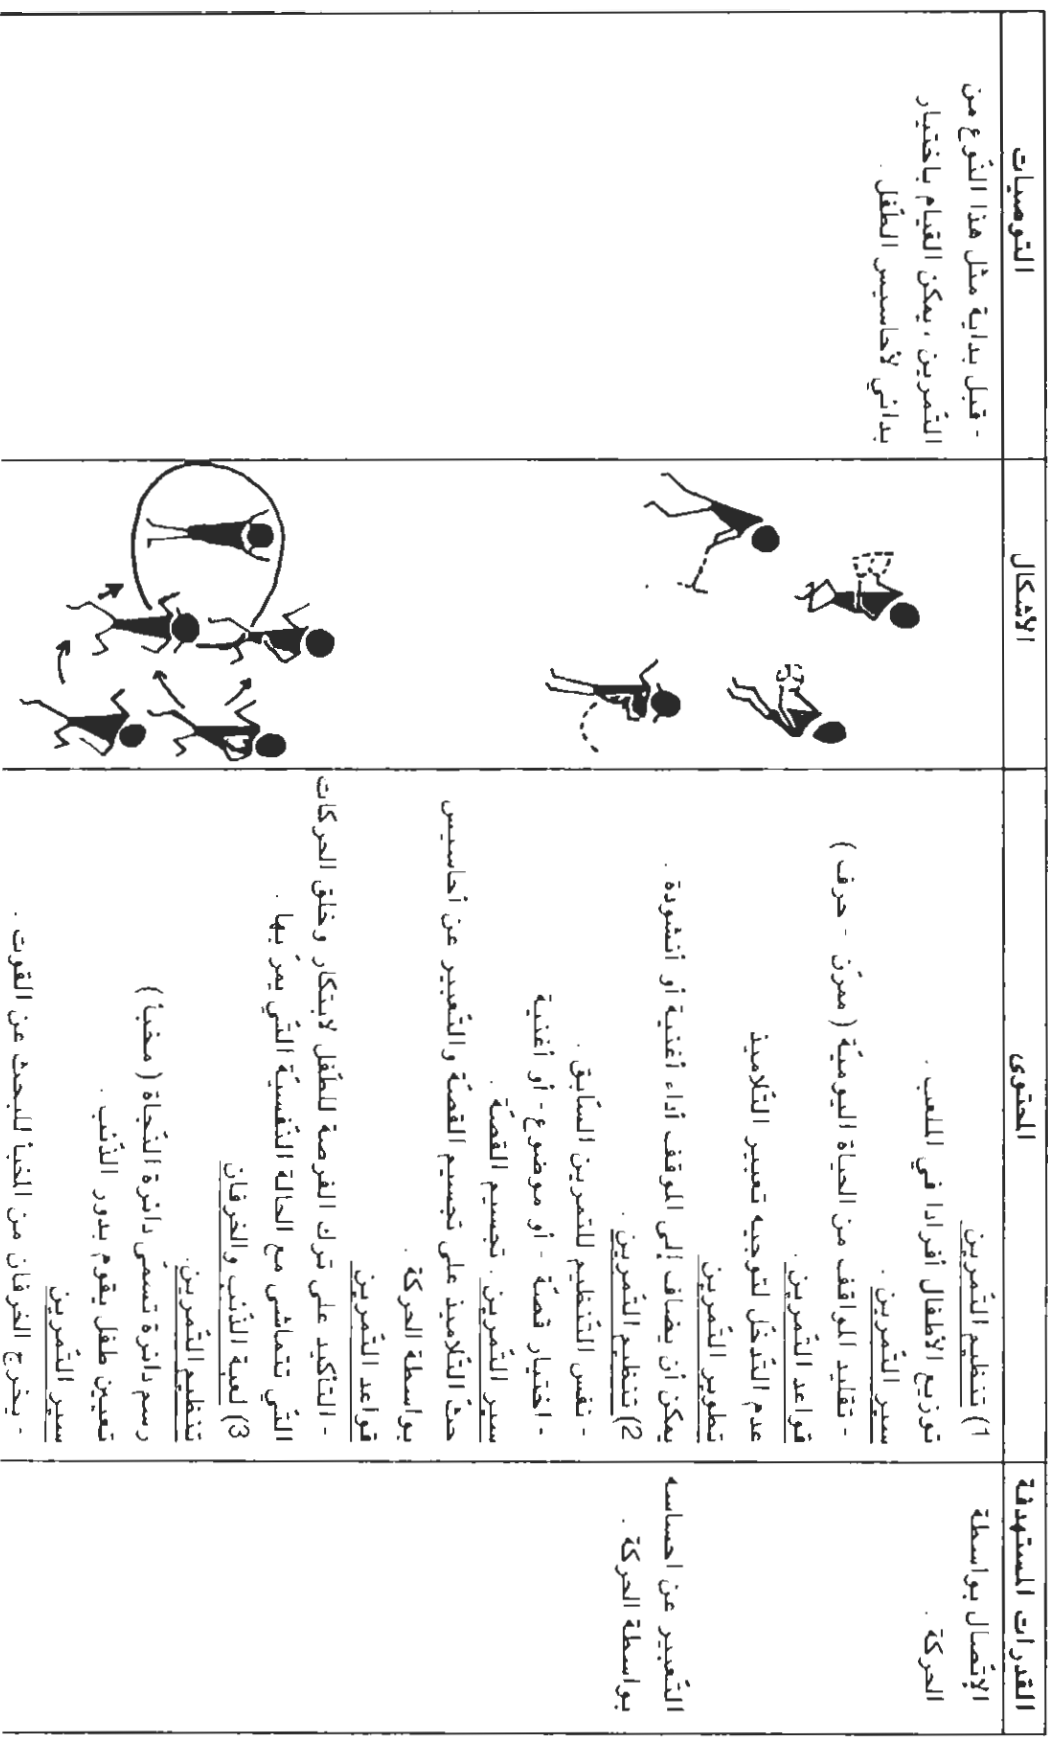 القدرات المستهدفة
المحتوى
الأشكال
التوصيات
الإتّصال بواسطة
الحركة .
التّعبير عن احساسه
بواسطة الحركة .
1) تنظيم التّمرين
توزيع الأطفال أفرادا في الملعب .
سير التّمرين .
- تقليد المواقف من الحياة اليوميّة ( ممرّن - حرف )
قواعد التّمرين .
عدم التّدخّل لتوجيه تعبير التّلاميذ
تطوير التّمرين
يمكن أن يضاف إلى الموقف أداء أغنية أو أنشودة .
2) تنظيم التّمرين .
- نفس التّنظيم للتمرين السّابق .
- اختيار قصّة - أو موضوع - أو أغنية
سير التّمرين . تجسيم القصّة .
حثّ التّلاميذ على تجسيم القصّة والتّعبير عن أحاسيس
بواسطة الحركة .
قواعد التّمرين
- التأكيد على ترك الفرصة للطّفل لابتكار وخلق الحركات
التّي تتماشى مع الحالة النّفسيّة التّي يمرّ بها .
3) لعبة الذّئب والخرفان
تنظيم التّمرين .
رسم دائرة تسمّى دائرة النّجاة ( مخبأ )
تعيين طفل يقوم بدور الذّئب .
سير التّمرين
- يخرج الخرفان من المخبأ للبحث عن القوت .
- قبل بداية مثل هذا النّوع من
التّمرين ، يمكن القيام باختبار
بدائي لأحاسيس الطّفل .